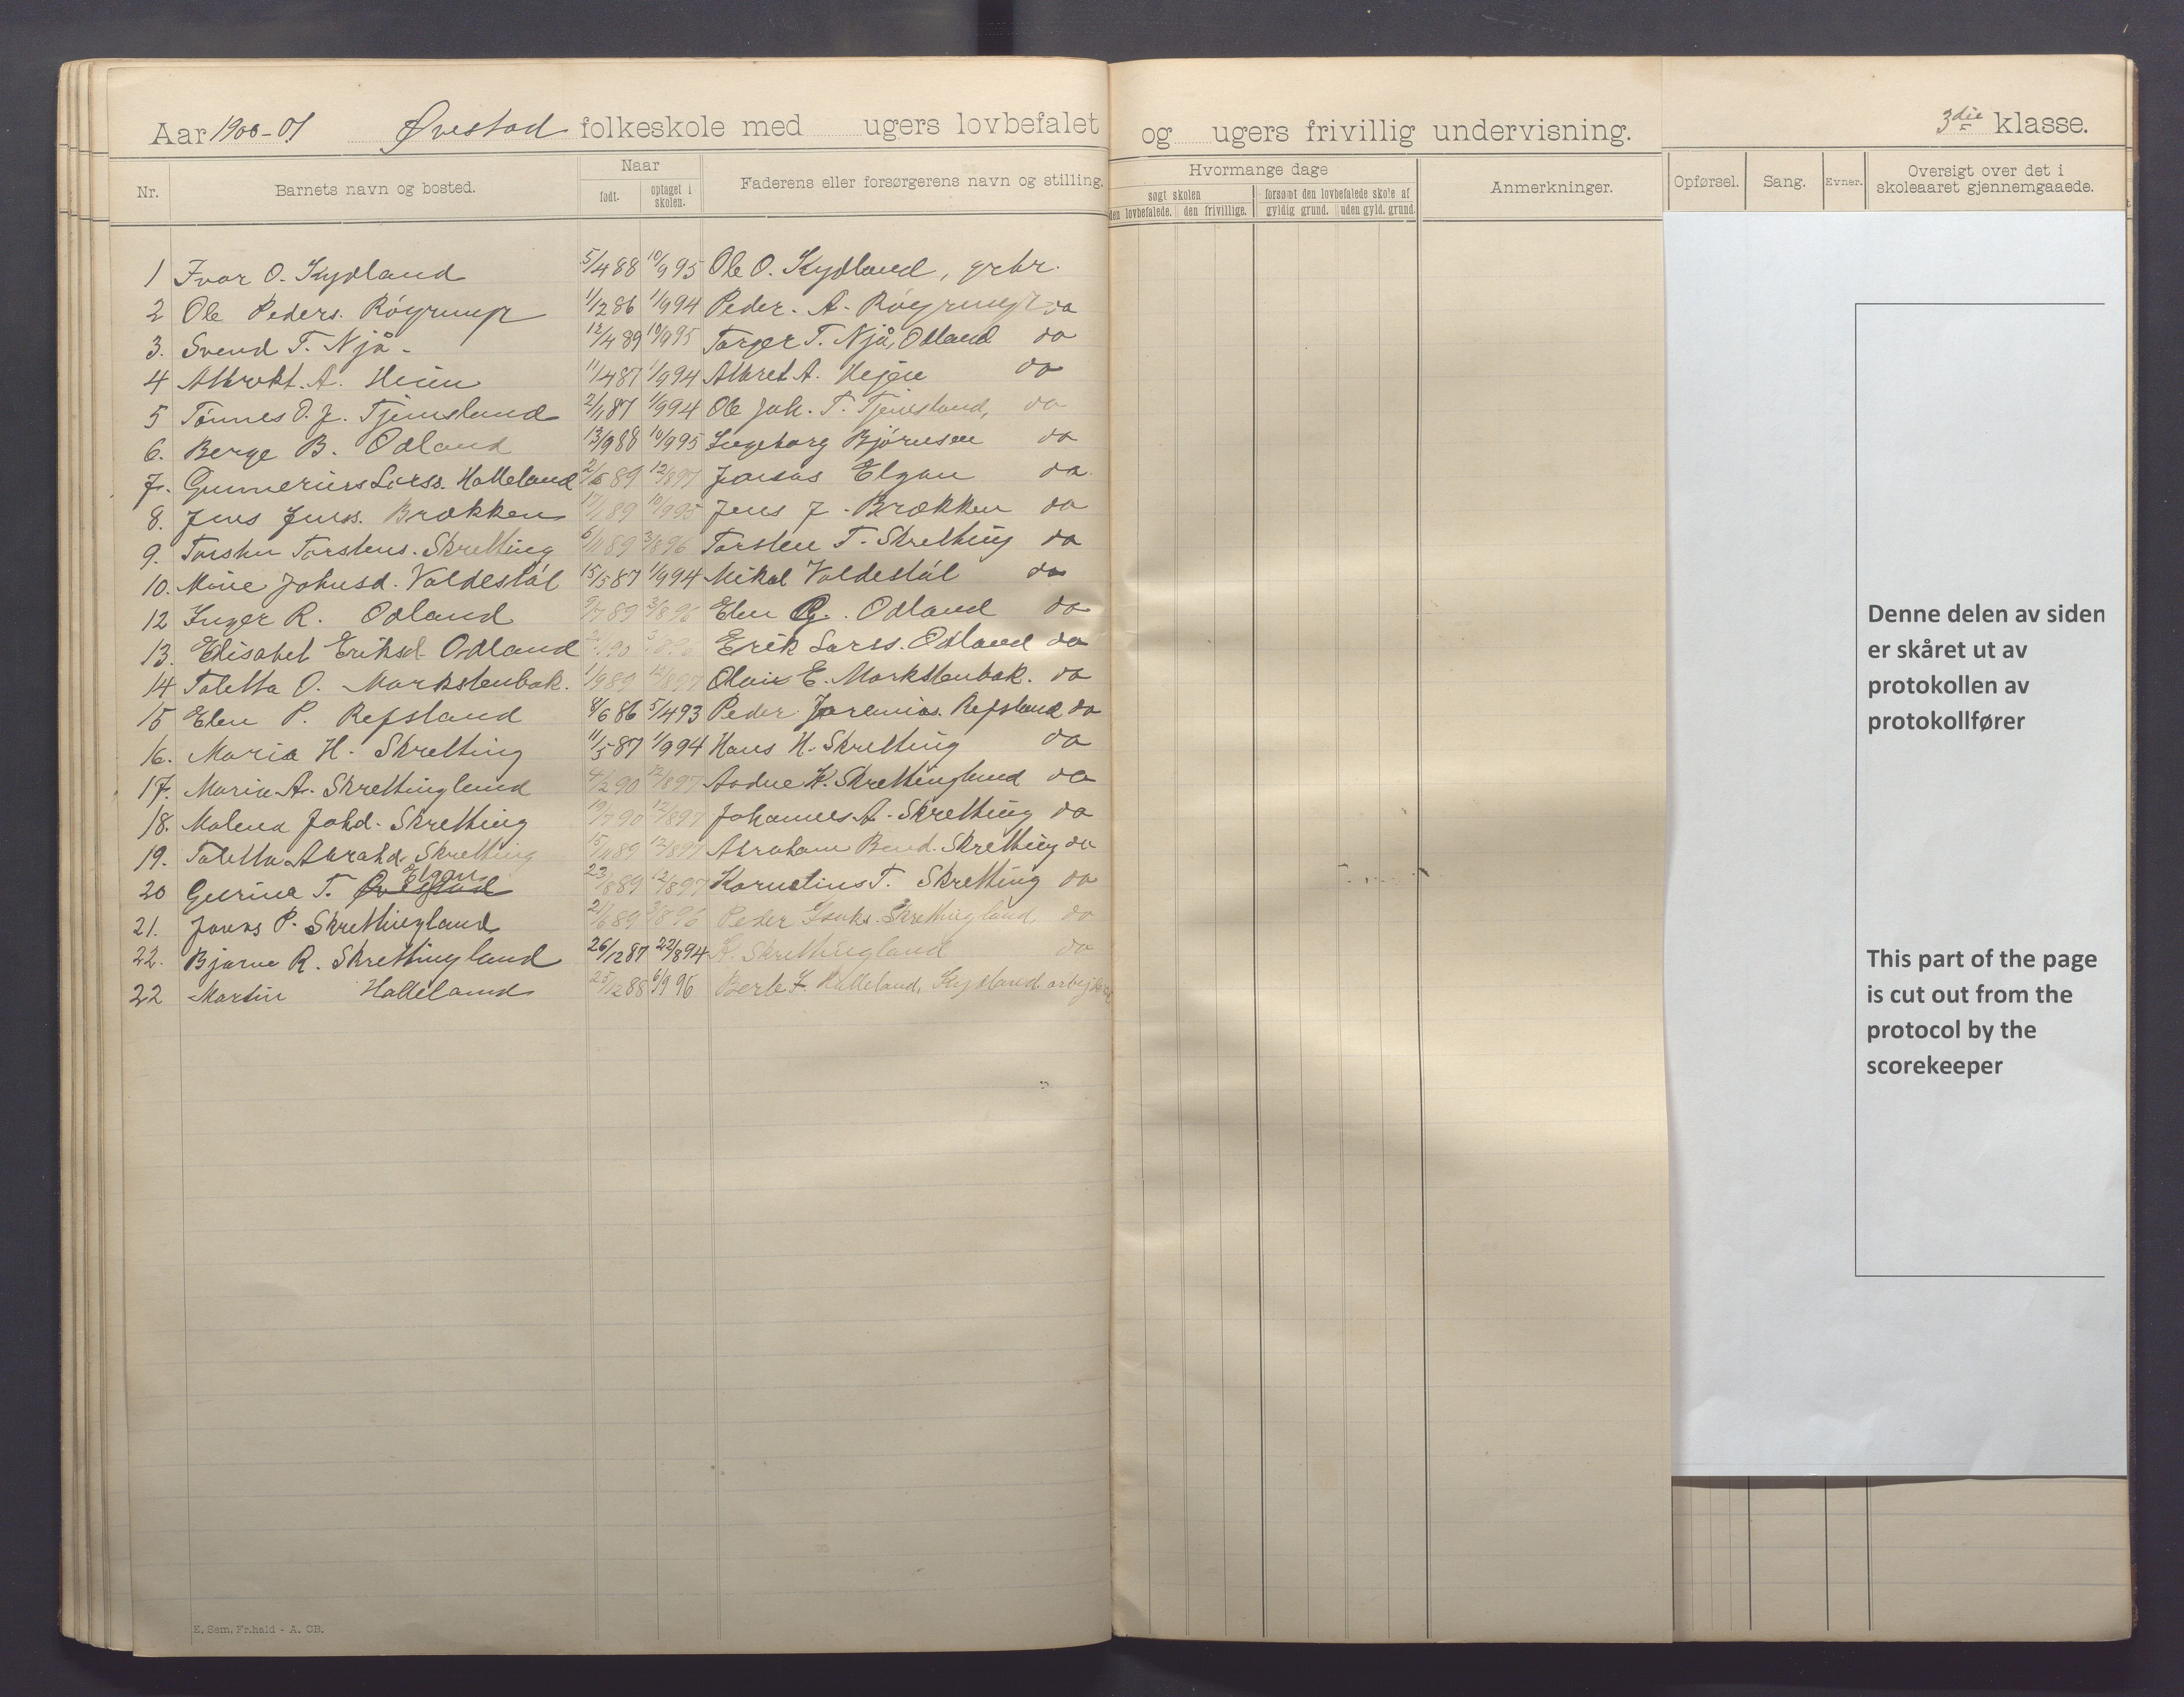 Aar 1900-01 Øvestad folkeskole med ugers lovbefalet og ugers frivillig undervisning. 3die klasse.
Nr. Barnets navn og bosted. Naar født. optaget i skolen. Faderens eller forsørgerens navn og stilling. Hvormange dage søgt skolen den lovbefalede. den frivillige. forsømt den lovbefalede skole af gyldig grund. uden gyld. grund. Anmerkninger. Opførsel. Sang. Evner. Oversigt over det i skoleaaret gjennemgaaede.
1 Ivar O. Kydland 5/4 88 10/9 95 Ole O. Kydland, grbr.
2 Ole Peders. Röyrmyr 1/12 86 1/9 94 Peder. A. Röyrmyr do
3. Svend T. Njå. 12/4 89 10/9 95 Torger T. Njå, Odland do
4 Albrekt. A. 11/4 87 1/9 94 Albret A. do
5 Tönnes O. J. Tjemsland 2/1 87 1/9 94 Ole Joh. T. Tjemsland, do
6. Berge B. Odland 13/9 88 10/9 95 Ingeborg Björnsen do
7. Gunnerius Larss. Halleland 89 12/8 97 Jonas Elgan do.
8. Jens Jenss. Brækken 17/1 89 10/9 95 Jens J. Brækken do
9. Torsten Torstens. Skretting 6/11 89 3/8 96 Torsten T. Skretting do
10. Mine Johnsd. Valdestål 15/5 87 1/9 94 Mikal Valdestål do
12 Inger R. Odland 9/7 89 3/8 96 Elen G. Odland do
13. Elisabet Eriksd. Odland Erik Larss. Odland do
14 Taletta O. Markstenbak. 1/9 89 12/8 97 Olaus E. Markstenbak. do
15 Elen P. Refsland 8/6 86 5/4 93 Peder Jeremias. Refsland do
16. Maria H. Skretting 11/5 87 1/9 94 Hans H. Skretting do
17. Maria A. Skrettingland 4/2 90 12/8 97 Aadne K. Skrettingland do
18. Malena Johd. Skretting 19/7 90 12/8 97 Johannes A. Skretting do
19. Taletta Abrahd. Skretting 15/11 89 12/8 97 Abraham Bend. Skretting do
Elgan
20 Gurina T. Øvestad 23/8 89 12/8 97 Kornelius T. Skretting do
21. Jonas P. Skrettingland 21/6 89 3/8 96 Peder Isaks. Skrettingland do
22. Bjarne R. Skrettingland 26/12 87 22/8 94 R. Skrettingland do
22 Martin Halleland 25/12 88 6/9 96 Berte J. Halleland, Kydland
E. Sem, Fr.hald - A. OB.
Denne delen av siden
er skåret ut av
protokollen av
protokollfører
This part of the page
is cut out from the
protocol by the
scorekeeper